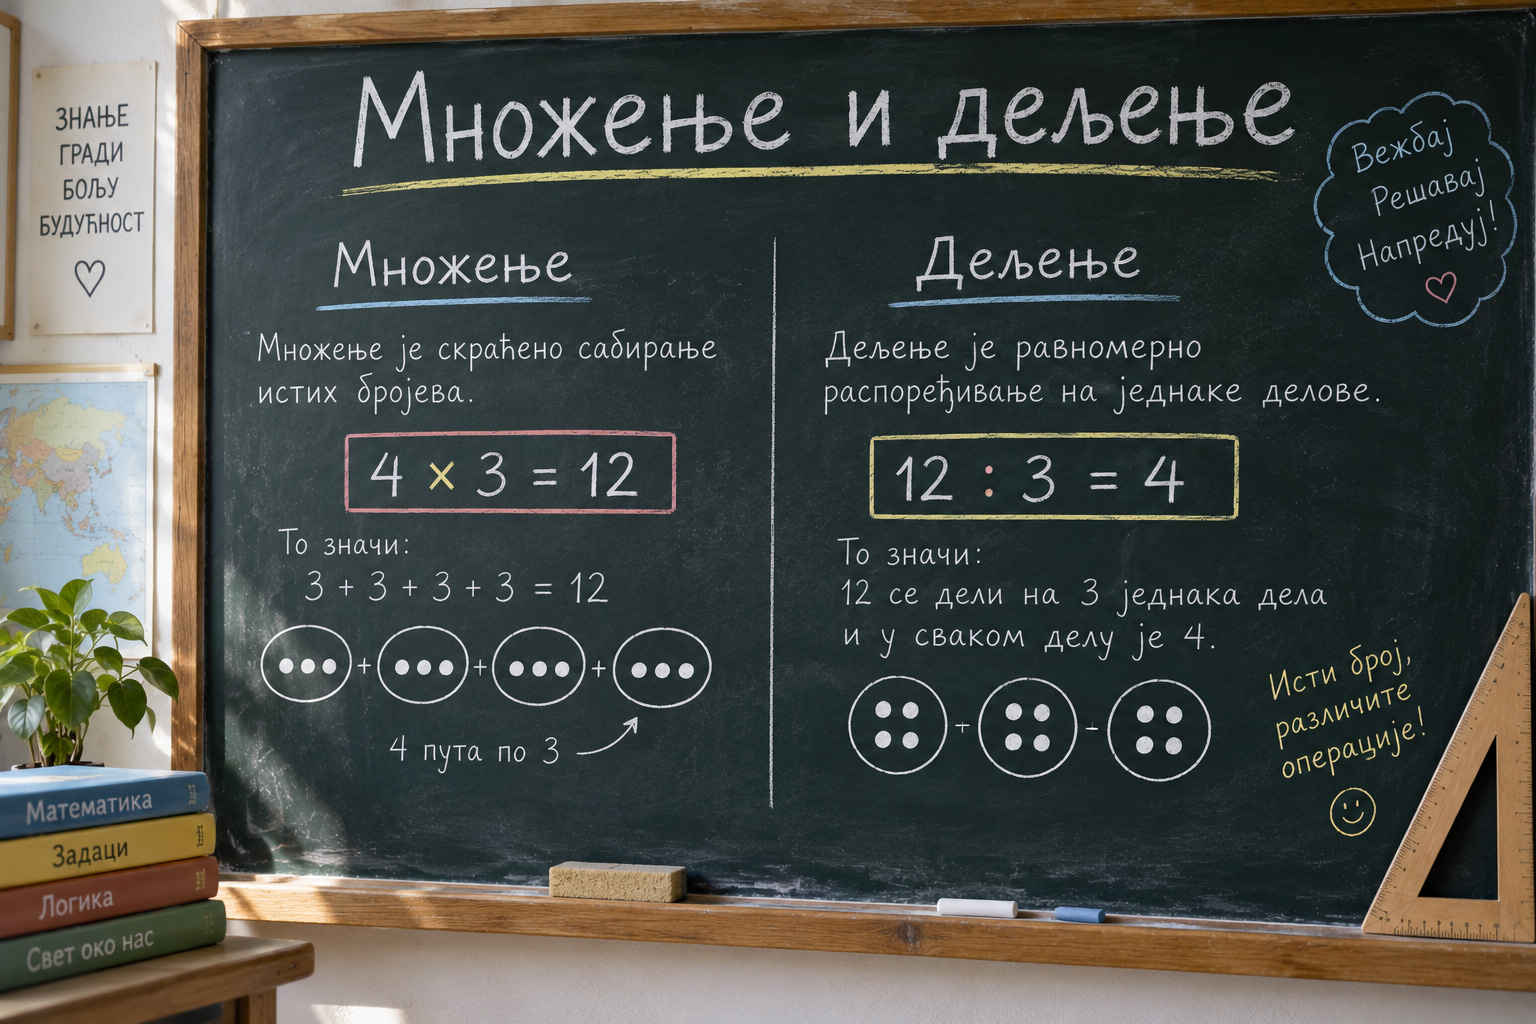 Множење и дељење
ЗНАЊЕ
ГРАДИ
БОЉУ
БУДУЋНОСТ
Вежбај
Решавај
Напредуј!
Множење
Множење је скраћено сабирање
истих бројева.
4 × 3 = 12
То значи:
3 + 3 + 3 + 3 = 12
+ + +
4 пута по 3
Дељење
Дељење је равномерно
распоређивање на једнаке делове.
12 : 3 = 4
То значи:
12 се дели на 3 једнака дела
и у сваком делу је 4.
+ -
Исти број,
различите
операције!
Математика
Задаци
Логика
Свет око нас